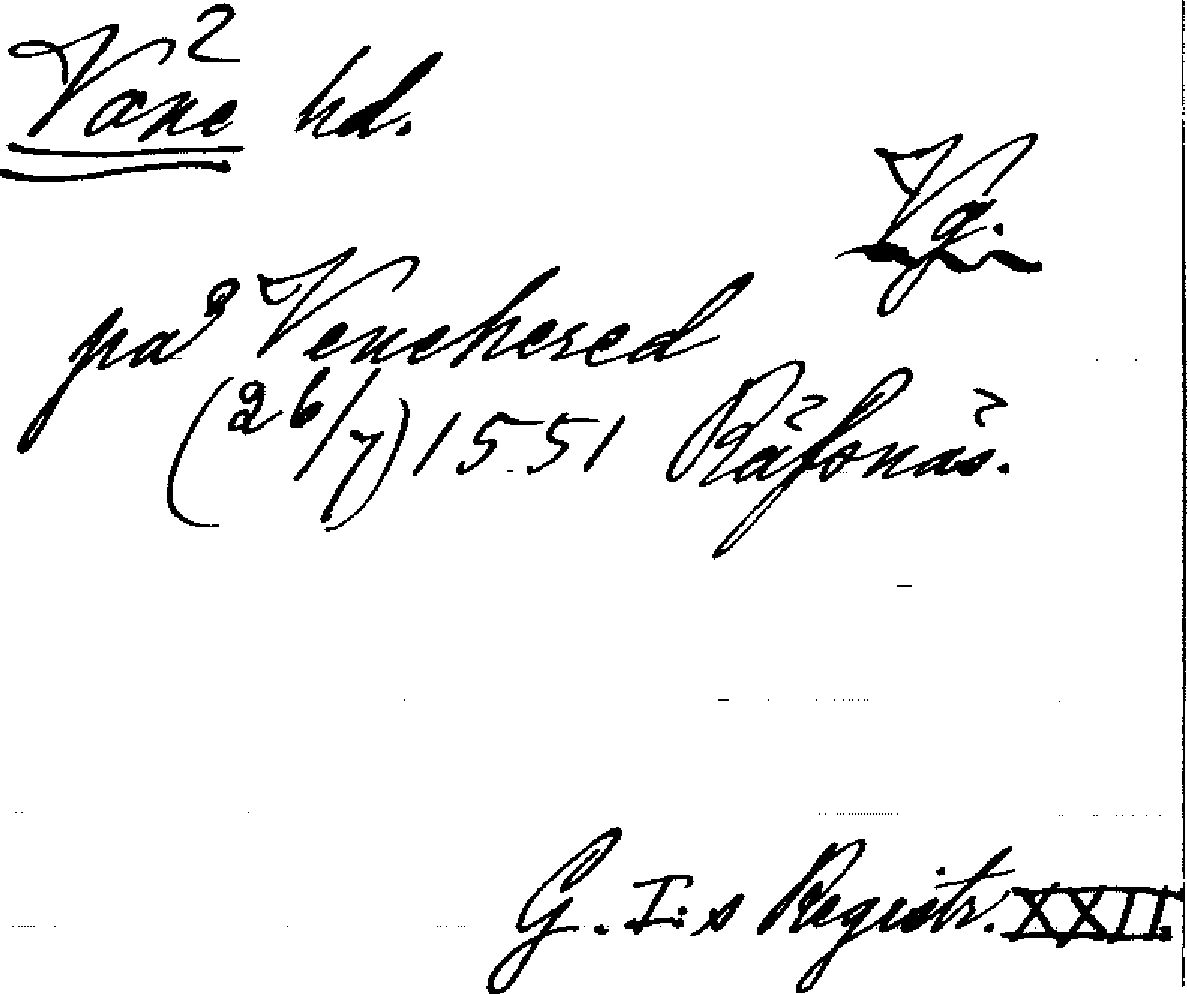 Väne hd.
Vg.
på Venehered
(26/7) 1551 Räfsnäs.
G. I:s Registr. XXII.